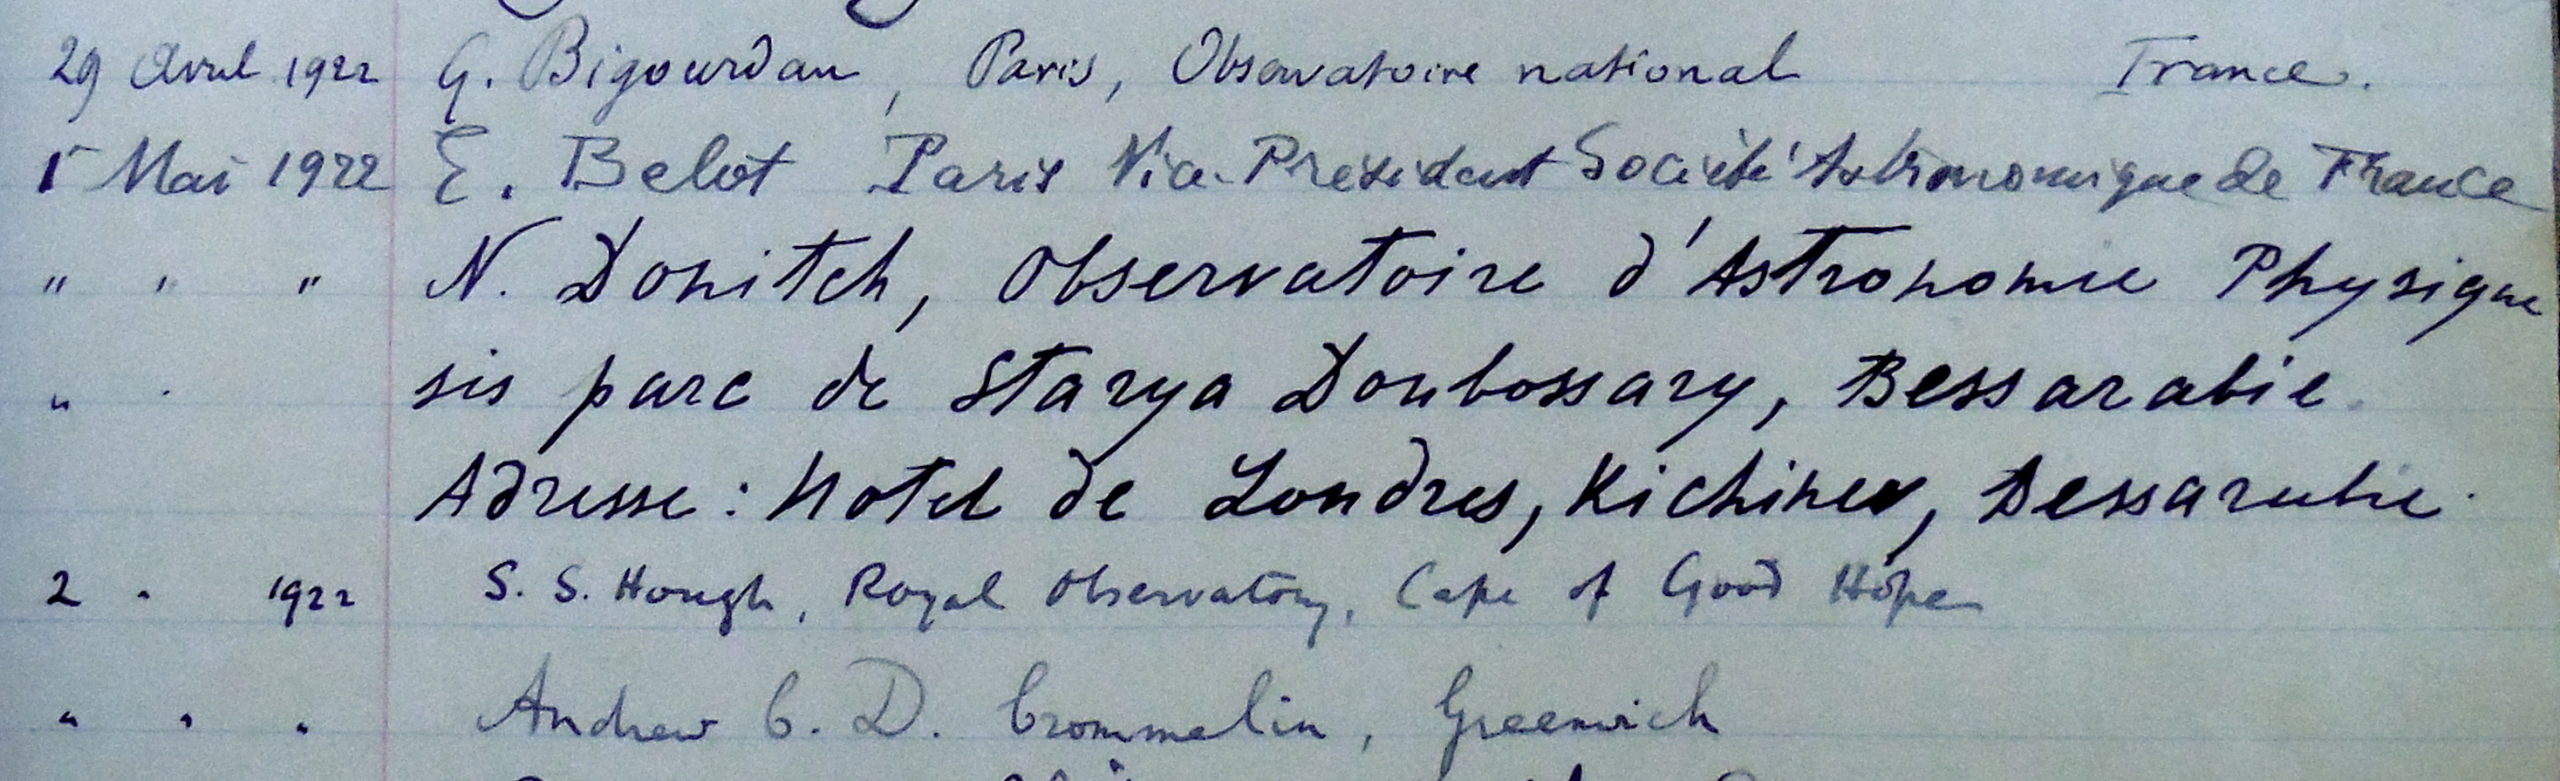 29 Avril 1922 G. Bigourdan, Paris, Observatoire national France.
1r Mai 1922 E. Belot Paris Vice-Président Société Astronomique de France
" " " N. Donitch, Observatoire d'Astronomie Physique
" " sis parc de Starya Doubossary, Bessarabie.
Adresse: Hotel de Londres, Kichinev, Bessarabie.
2 " 1922 S. S. Hough, Royal Observatory, Cape of Good Hope
" " " Andrew C. D. Crommelin, Greenwich